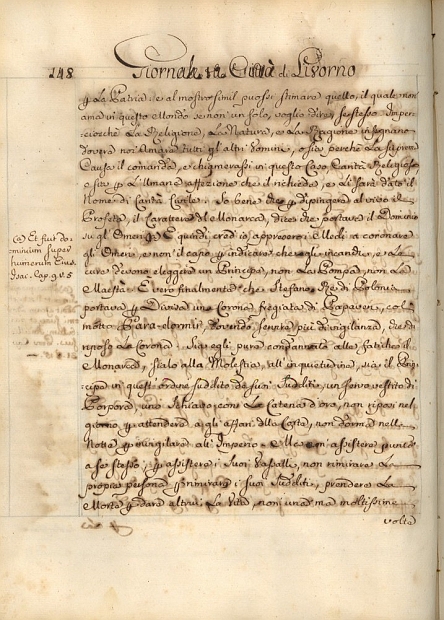 148
Giornale della Città di Livorno
la Patria: e al mostro simil puossi stimare quello, il quale non
ama in questo Mondo se non un solo, voglio dire, se stesso Imper-
cioche La Religione, La Natura, e La Ragione insegnano
dover noi Amare tutti gl'altri Homini, o sia perche La suprema
Causa il comanda, e chiamerassi in questo Caso Carità Religiosa
o sia L'Umana affezione che il richiede, e Li sarà dato il
Nome di Carità Civile. So bene che dipingere al vivo il
Profeta, il Carattere del Monarca, dice che portava il Dominio
su gl'Omeri (a) E quindi cred'io appresero i Medi a coronare
gl'Omeri, e non il capo indicare che gl'Incendi, e La
cura devono eleggere un Principe, non La Pompa, non La
Maestà: E vero finalmente che Stefano Rè di Polonia
portava Divisa una Corona fregiata di Papaveri, col
motto Para
dovendo servire più di vigilanza, che di
riposo La Corona. Sia egli pure condannato alle fatiche il
Monarca, sialo alla Molestia, all'inquietudine, sia il Prin-
cipe in quest'ordine suddito de suoi Sudditi, un servo vestito di
Porpora, uno Schiavo con Le Catene d'oro, non riposi nel
giorno attendere agl'affari della Corte, non dorma nella
Notte invigilare all'Imperio. Ma non assistere punto
a se stesso, assistere i suoi Vassalli, non rimirare La
propria persona rimirare i suoi Sudditi, prendere La
Morte dare altrui La Vita, non una ma moltissime
volte
(a) Et fuit do-
minium super
humerum Eius
Isac. Cap. 9. v. 5